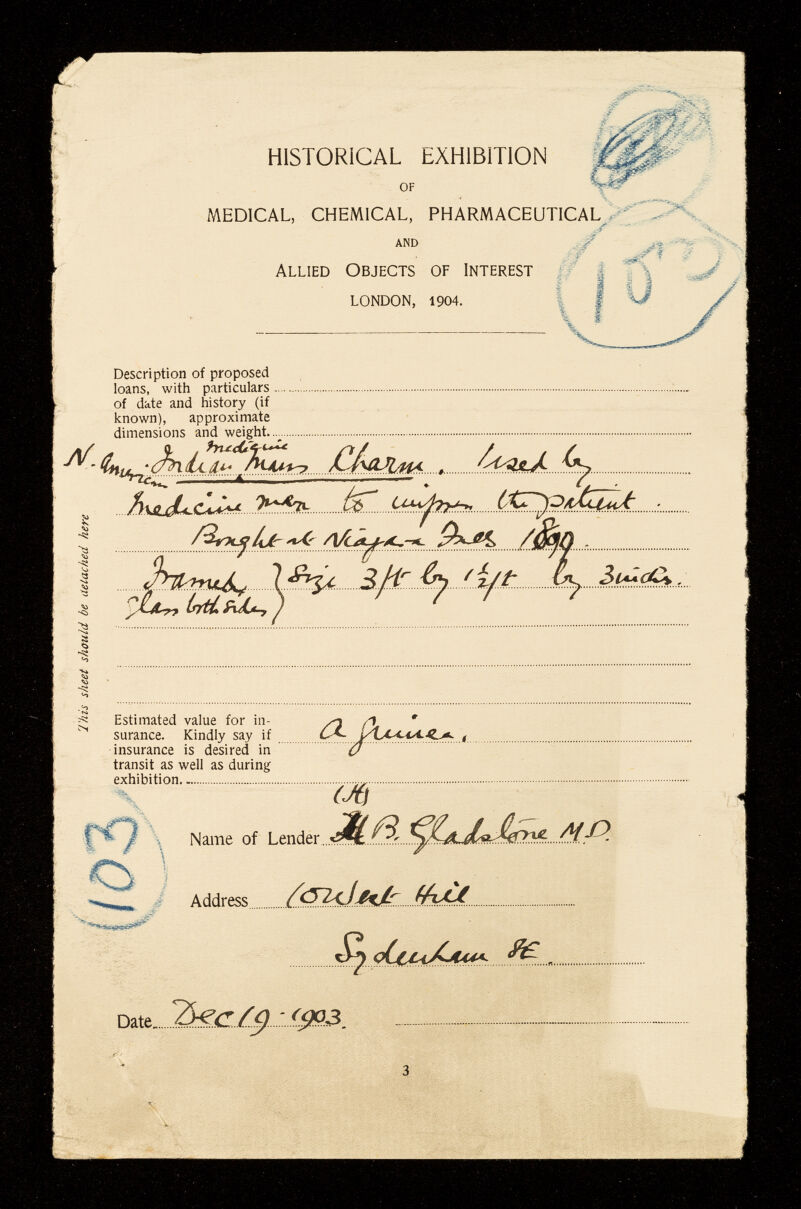 HISTORICAL EXHIBITION
OF
MEDICAL, CHEMICAL, PHARMACEUTICAL
AND
ALLIED OBJECTS OF INTEREST
LONDON, 1904.
103
Description of proposed
loans, with particulars
of date and history (if
known), approximate
dimensions and weight.
N. American Indian medicine Mans Charm. Used by
Medicine man to impress the patient.
Bought at Niagara Falls
Framed } Size 3/ft by 1½/ft by 3 inches.
glass both sides
This sheet should be detached here
Estimated value for in-
surance. Kindly say if
insurance is desired in
transit as well as during
exhibition.
A guinea.
(H)
Name of Lender H B. Gladstone M.D.
103
Address 10 West Hill
Sydenham SE.
Date Dec 19 - 1903.
3